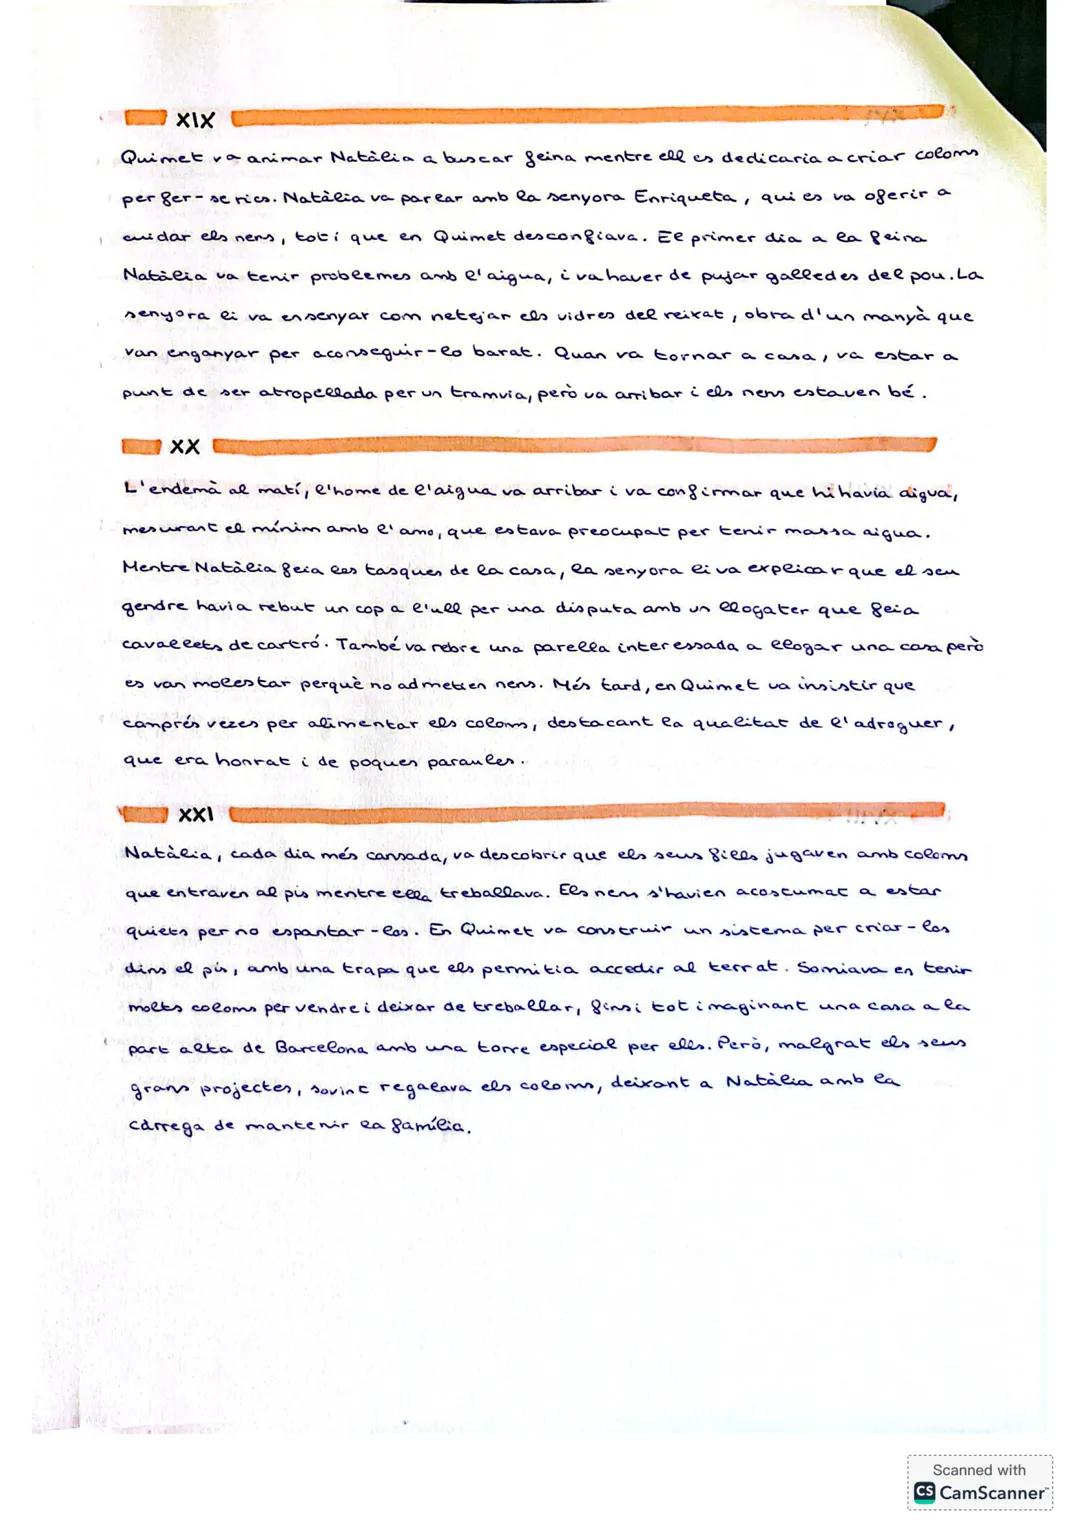 XIX
Quimet va animar Natàlia a buscar feina mentre ell es dedicaria a criar coloms
per fer-se rics. Natàlia va parlar amb la senyora Enriqueta, qui es va oferir a
cuidar els nens, tot i que en Quimet desconfiava. El primer dia a la feina
Natàlia va tenir problemes amb l'aigua, i va haver de pujar galledes del pou. La
senyora li va ensenyar com netejar els vidres del reixat, obra d'un manyà que
van enganyar per aconseguir-lo barat. Quan va tornar a casa, va estar a
punt de ser atropellada per un tramvia, però va arribar i els nens estaven bé.
XX
L'endemà al matí, l'home de l'aigua va arribar i va confirmar que hi havia aigua,
mesurant el mínim amb l'amo, que estava preocupat per tenir massa aigua.
Mentre Natàlia feia les tasques de la casa, la senyora li va explicar que el seu
gendre havia rebut un cop a l'ull per una disputa amb un llogater que feia
cavallets de cartró. També va rebre una parella interessada a llogar una casa però
es van molestar perquè no admetien nens. Més tard, en Quimet va insistir que
comprés veces per alimentar els coloms, destacant la qualitat de l'adroguer,
que era honrat i de poques paraules.
XXI
Natàlia, cada dia més cansada, va descobrir que els seus fills jugaven amb coloms
que entraven al pis mentre ella treballava. Els nens s'havien acostumat a estar
quiets per no espantar-los. En Quimet va construir un sistema per criar-los
dins el pis, amb una trapa que els permitia accedir al terrat. Somiava en tenir
molts coloms per vendre i deixar de treballar, fins i tot imaginant una casa a la
part alta de Barcelona amb una torre especial per ells. Però, malgrat els seus
grans projectes, sovint regalava els coloms, deixant a Natàlia amb la
càrrega de mantenir la família.
Scanned with
CS CamScanner